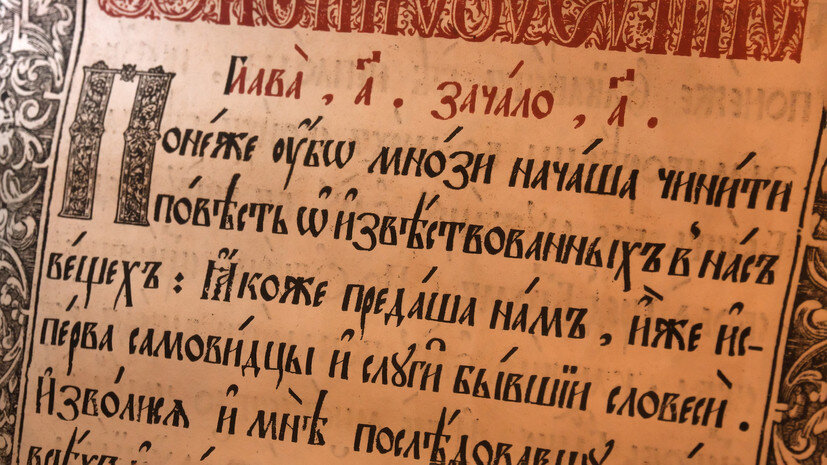 Глава̀, а҃. зача́ло, а҃.
Поне́же ᲂу҆́бѡ мно́зи нача́ша чини́ти
по́вѣсть ѡ҆ и҆звѣ́ствованныхъ в̾ на́съ
ве́щехъ: Ꙗ҆́коже преда́ша на́мъ, и҆̀же и҆с-
пе́рва самови́дцы и҆ слꙋги̑ бы́вшїи словесѝ.
И҆зво́лисѧ и҆ мнѣ̀ послѣ́довавшꙋ